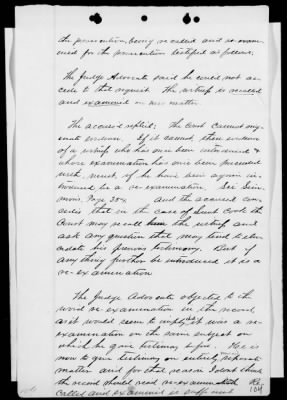 the prosecution, being recalled and re-exam-
ined for the prosecution testified as follows;
The Judge Advocate said he could not ac-
cede to that request. The witness is recalled
and examined on new matter.
The accused replied; The Court cannot orig-
inate evidence. If it cannot, then evidence
of a witness who has once been introduced &
whose examination has once been proceeded
with, must, if he have been again in-
troduced be a re-examination. See Sim-
mons, Page 384. And the accused con-
cedes that in the case of Lieut. the
Court may recall him the witness and
ask any question that may tend to elu-
cidate his previous testimony. But if
any thing further be introduced it is a
re-examination
The Judge Advocate objected to the
word re-examination in the record
as it would seem to imply that it was a re-
examination on the same subject on
which he gave testimony before. He is
now to give testimony on entirely separate
matter and for that reason I don't think
the record should read re-examined. Re-
called and examined is sufficient
104